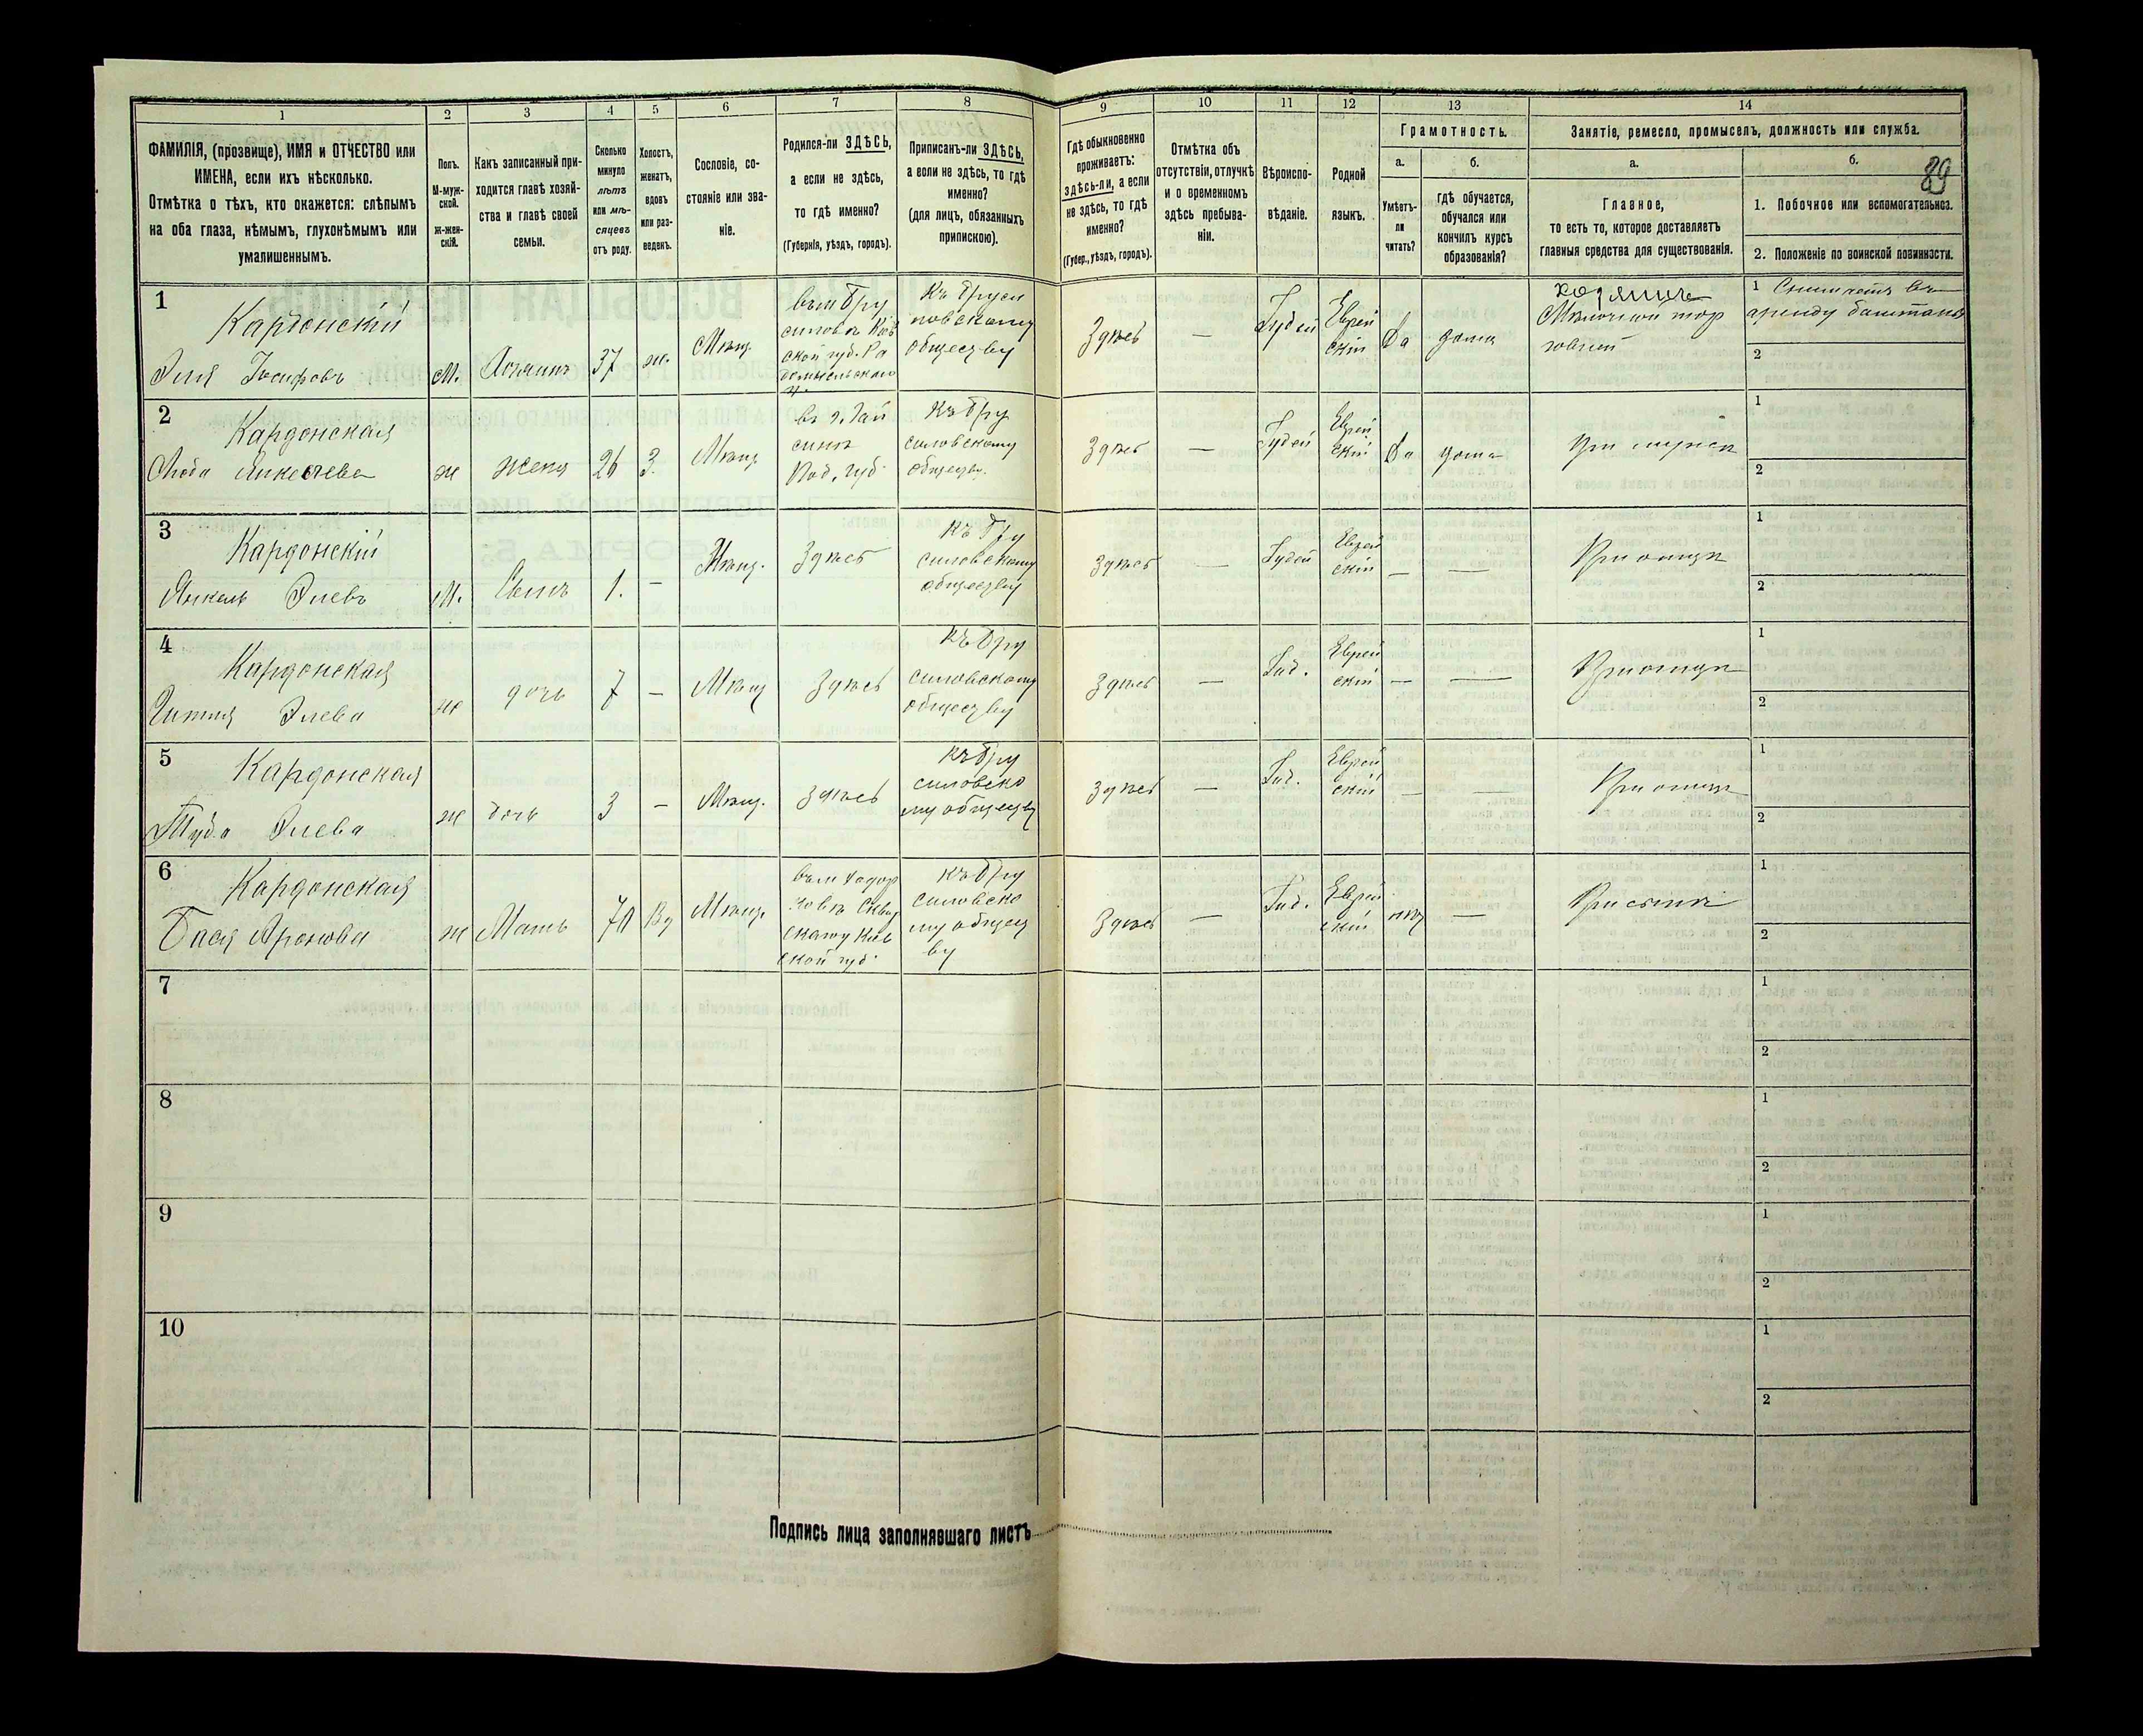 1
2
3
4
5
6
7
8
9
10
11
12
13
14
ФАМИЛІЯ, (прозвище), ИМЯ и ОТЧЕСТВО или
ИМЕНА, если ихъ нѣсколько.
Отмѣтка о тѣхъ, кто окажется: слѣпымъ
на оба глаза, нѣмымъ, глухонѣмымъ или
умалишеннымъ.
Полъ.
М-муж-
ской.
Ж-жен-
скій.
Какъ записанный при-
ходится главѣ хозяй-
ства и главѣ своей
семьи.
Сколько
минуло
лѣтъ
или мѣ-
сяцевъ
отъ роду.
Холостъ,
женатъ,
вдовъ
или раз-
веденъ.
Сословіе, со-
стояніе или зва-
ніе.
Родился-ли ЗДѢСЬ,
а если не здѣсь,
то гдѣ именно?
(Губернія, уѣздъ, городъ).
Приписанъ-ли ЗДѢСЬ,
а если не здѣсь, то гдѣ
именно?
(для лицъ, обязанныхъ
припискою).
Гдѣ обыкновенно
проживаетъ:
здѣсь-ли, а если
не здѣсь, то гдѣ
именно?
(Губер., уѣздъ, городъ).
Отмѣтка объ
отсутствіи, отлучкѣ
и о временномъ
здѣсь пребыва-
ніи.
Вѣроиспо-
вѣданіе.
Родной
языкъ.
Грамотность.
а.
Умѣетъ-
ли
читать?
б.
гдѣ обучается,
обучался или
кончилъ курсъ
образованія?
Занятіе, ремесло, промыселъ, должность или служба.
а.
Главное,
то есть то, которое доставляетъ
главныя средства для существованія.
б.
89
1. Побочное или вспомогательное.
2. Положеніе по воинской повинности.
1
Кардонскій
Элія Іосифовъ
М.
Хозяинъ
37
ж.
Мѣщ.
въ м Бру
силовѣ Кіев
ской губ. Ра
домысльскаго
у.
Къ Бруси
ловскому
обществу
Здѣсь
—
Іудей
Еврей
скій
Да
дома
хозяинъ
Мелочной тор
говлей
1 Снимаетъ въ
аренду баштаны
2
2
Кардонская
Люба Янкелева
ж
жена
26
З.
Мѣщ
въ г. Гай
синѣ
Под. губ.
Къ Бру
силовскому
обществу.
Здѣсь
—
Іудей
Еврей
скій
Да
дома
При мужѣ
1
2
3
Кардонскій
Янкель Элевъ
М.
Сынъ
1.
—
Мѣщ.
Здѣсь
Къ Бру
силовскому
обществу
Здѣсь
—
Іудей
Еврей
скій
—
—
При отцѣ
1
2
4
Кардонская
Элева
ж
дочь
7
—
Мѣщ
Здѣсь
Къ Бру
силовскому
обществу
Здѣсь
—
Іуд.
Еврей
скій
—
—
При отцѣ
1
2
5
Кардонская
Туба Элева
ж
дочь
3
—
Мѣщ.
Здѣсь
Къ Бру
силовско
му обществу
Здѣсь
—
Іуд.
Еврей
скій
—
—
При отцѣ
1
2
6
Кардонская
Бася Аронова
ж
Мать
70
Вд
Мѣщ.
въ м Ходор
ковѣ Сквир
скаго у Кіев
ской губ.
Къ Бру
силовско
му общест
ву
Здѣсь
—
Іуд.
Еврей
скій
нѣт
—
При сынѣ
1
2
7
1
2
8
1
2
9
1
2
10
1
2
Подпись лица заполнявшаго листъ